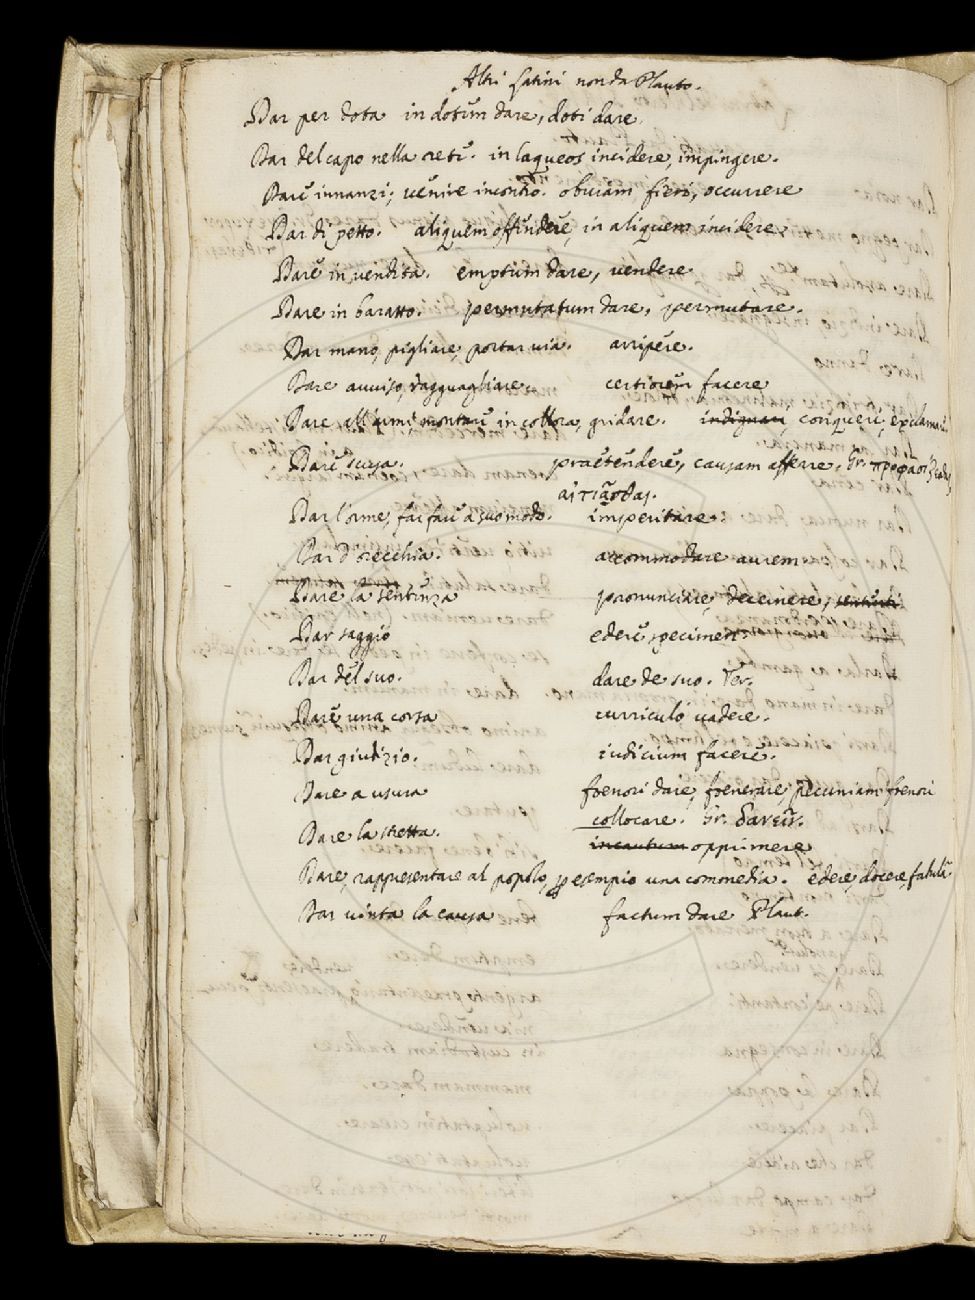 Altri latini non da Plauto.
Dar per dota in dotem dare, doti dare.
Dar del capo nella rete. in laqueos incidere, impingere.
Dare innanzi, venire incontro. obviam fieri, occurrere
Dar di petto. aliquem offendere, in aliquem incidere.
Dare in vendita. emptum dare, vendere
Dare in baratto. permutatum dare, permutare.
Dar mano, pigliare, portar via. arripere.
Dare avviso, ragguagliare. certiorem facere
Dare all'armi, montare in collora, gridare. indignari, conqueri, exclamare.
Dare scusa. praetendere, causam afferre. Gr.
αἰτιᾶσθαι.
Dar l'orme, far fare a suo modo. imperitare.
Dar d'orecchia. accommodare aurem
Dare la sentenza pronunciare, decernere,
Dar saggio edere specimen.
Dar del suo. dare de suo. Ter.
Dare una corsa curriculo vadere.
Dar giudizio. iudicium facere.
Dare a usura foenori dare, foenerare, pecuniam foenori
collocare. Gr. δανείζ.
Dare la stretta. incautum opprimere
Dare, rappresentare al popolo, per esempio una commedia. edere, docere, fabulam
Dar vinta la causa factum dare Plaut.